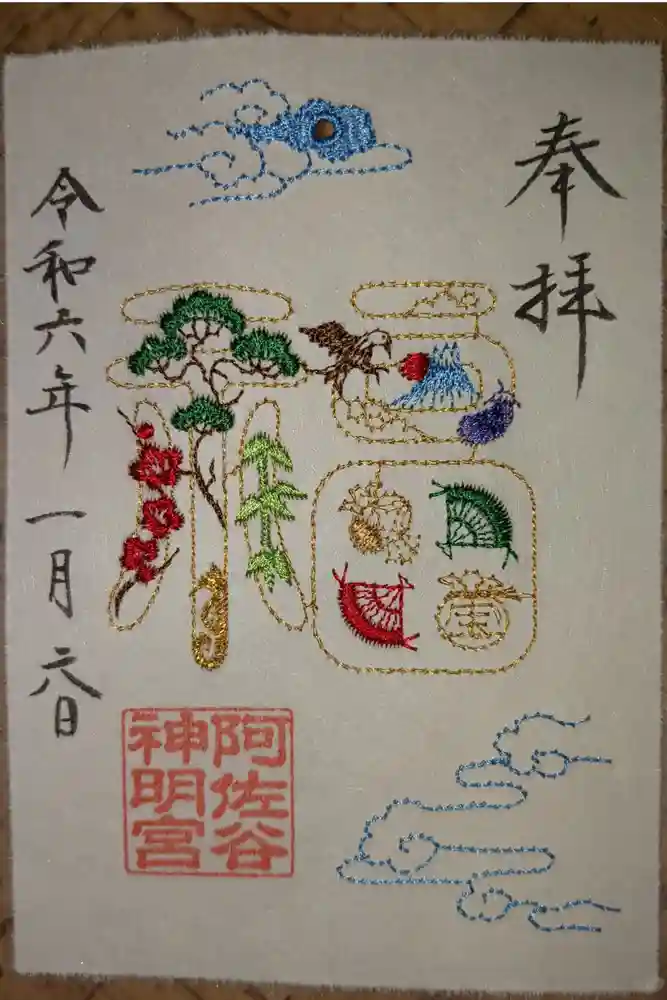 奉拝
福
寿
阿佐谷
神明宮
令和六年一月六日